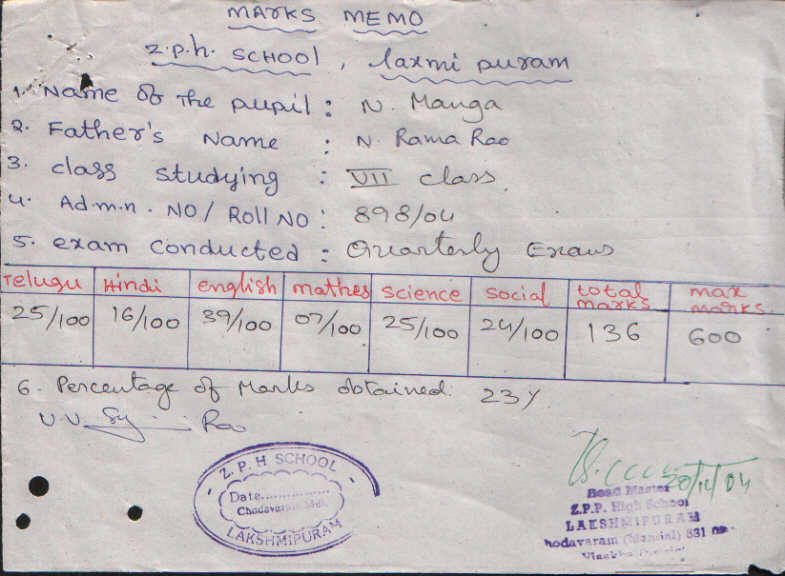 MARKS MEMO
Z.P.h. SCHOOL, laxmi puram
1. Name of The pupil : N. Manga
2. Father's Name : N. Rama Rao
3. class studying : VII class.
4. Admn. NO/ Roll NO : 898/04
5. exam conducted : Quarterly Exams
Telugu Hindi english mathes science social total marks max marks.
25/100 16/100 39/100 07/100 25/100 24/100 136 600
6. Percentage of Marks obtained: 23%
V.V. Rao
Z.P.H SCHOOL
Date................
Chodavaram Mdl.
LAKSHMIPURAM
20/12/04
Head Master
Z.P.P. High School
LAKSHMIPURAM
hodavaram (Mandal) 531